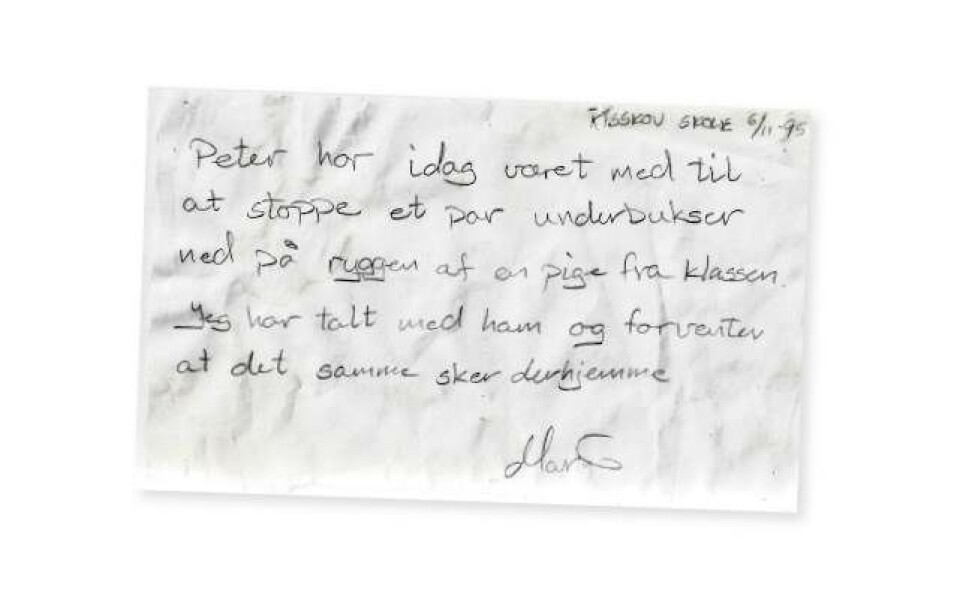 RISSKOV SKOLE 6/11-95
Peter har idag været med til
at stoppe et par underbukser
ned på ryggen af en pige fra klassen.
Jeg har talt med ham og forventer
at det samme sker derhjemme